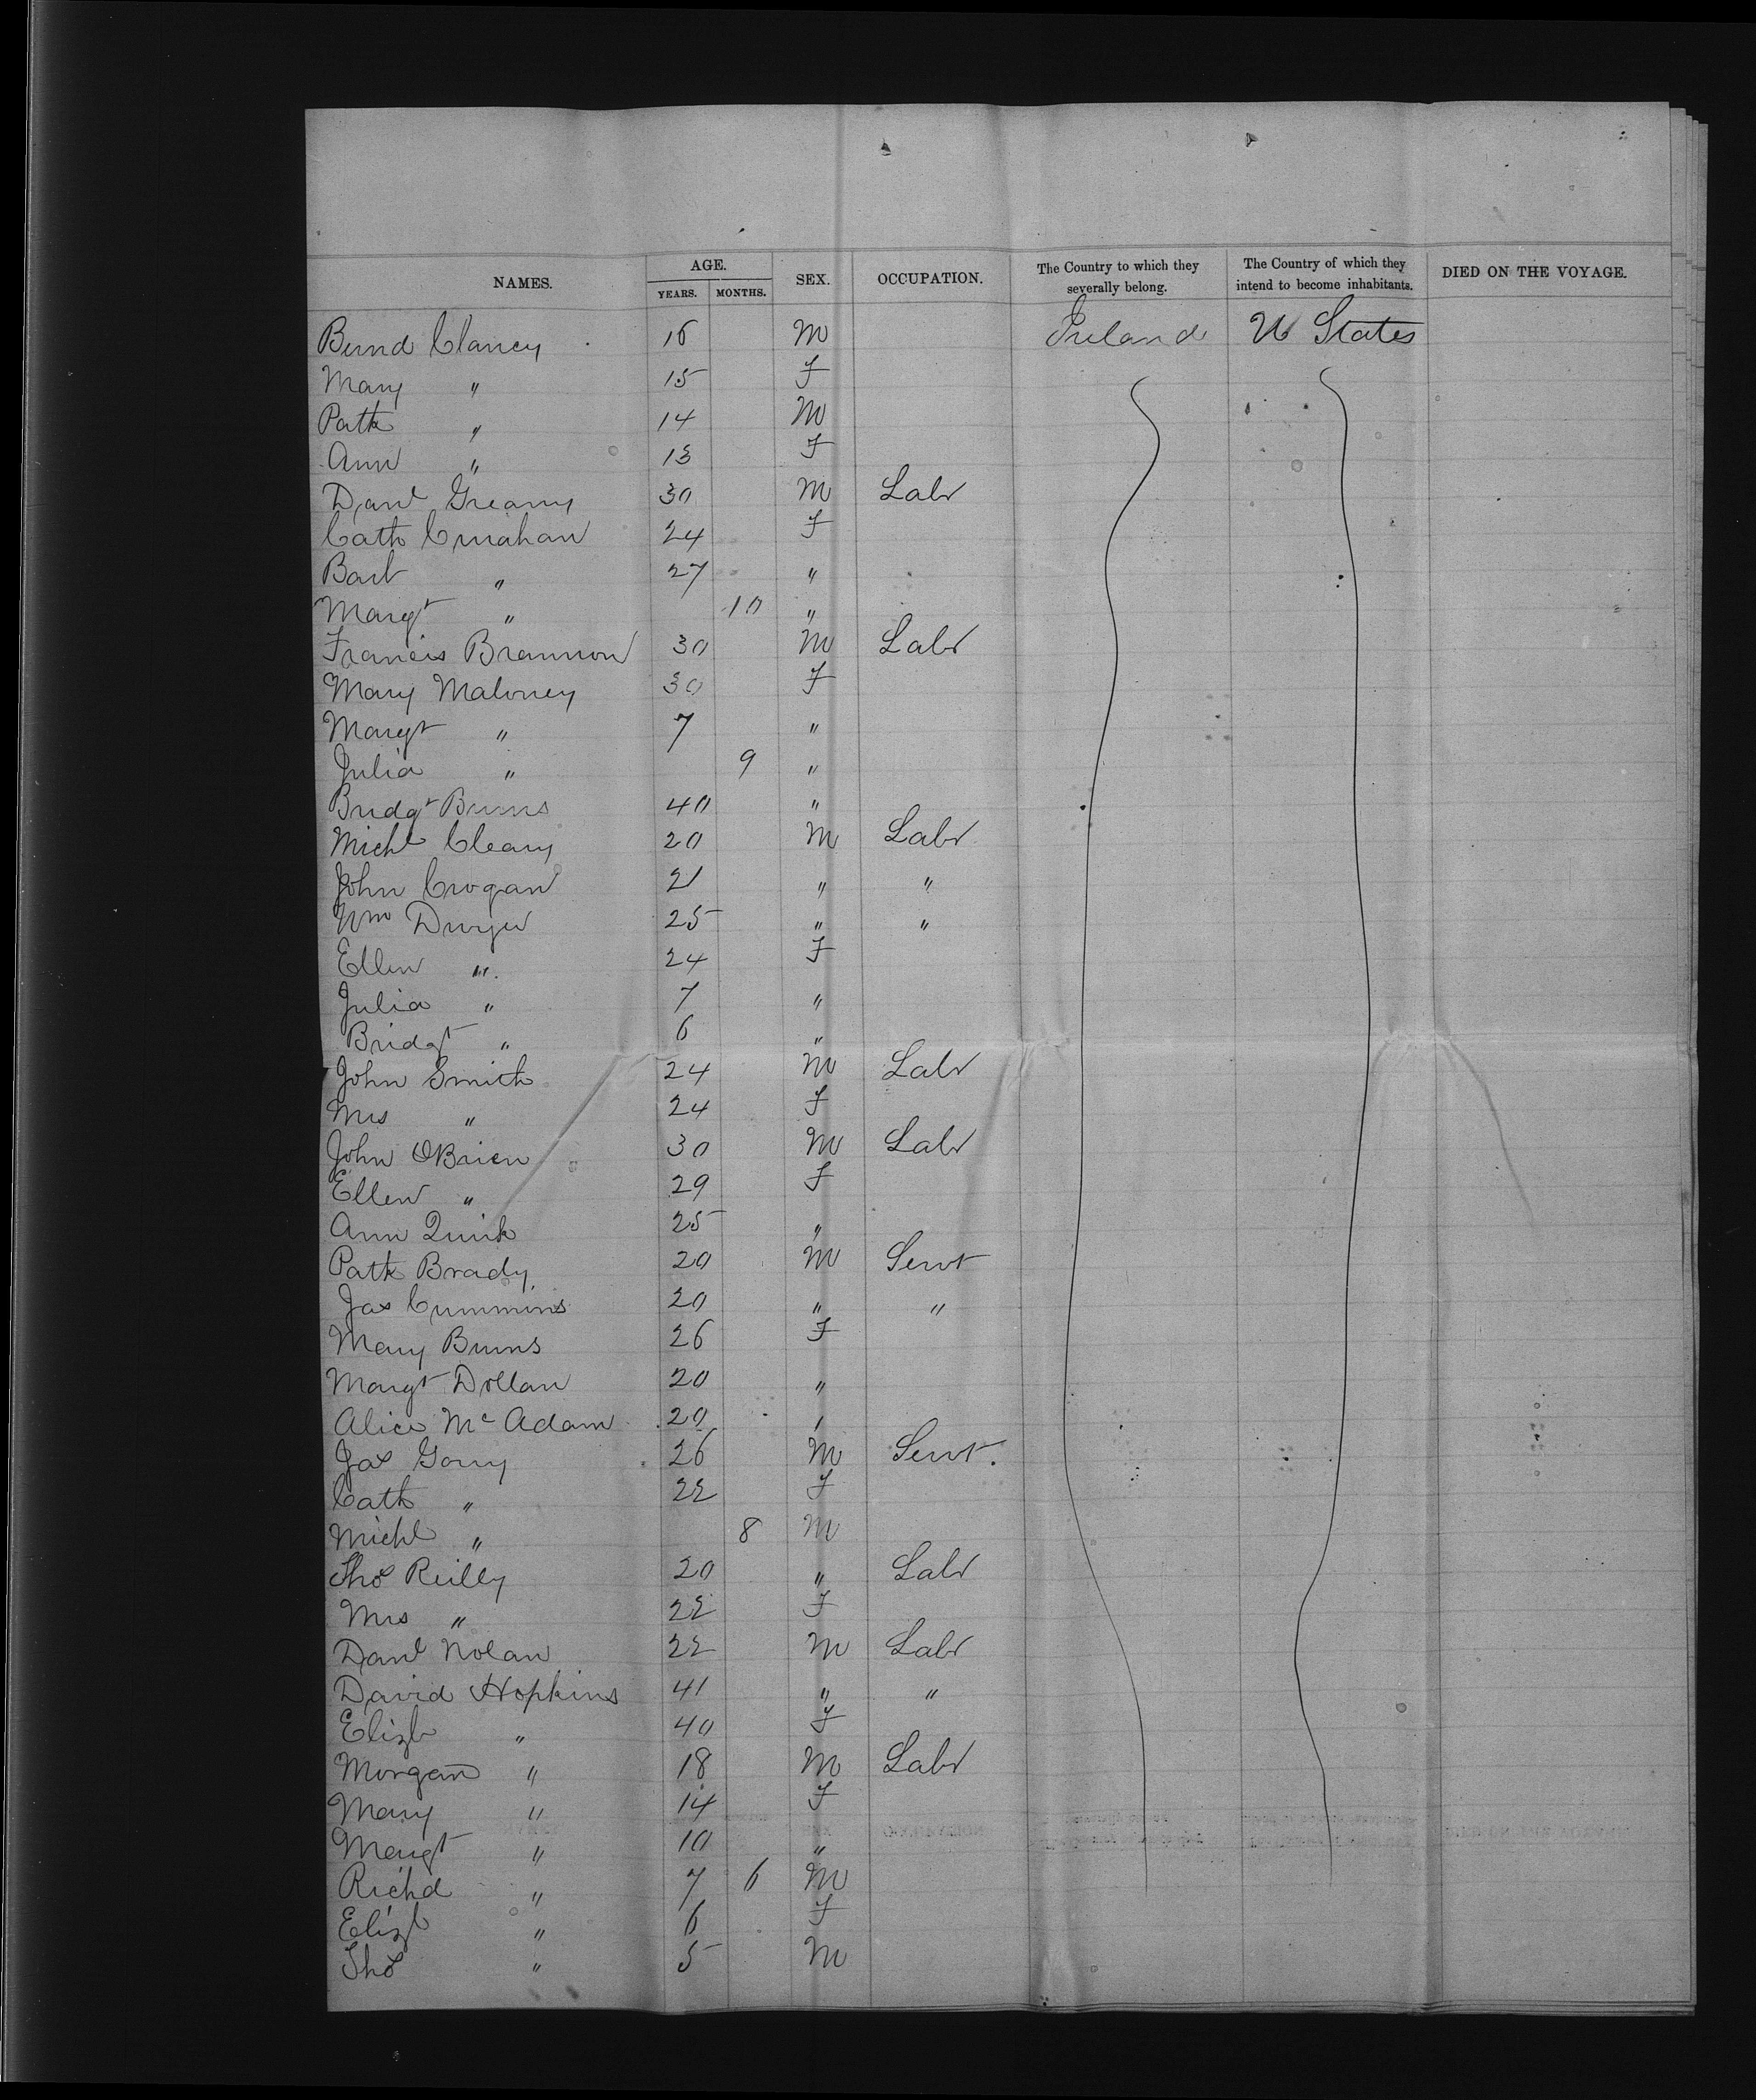 NAMES. AGE. YEARS. MONTHS. SEX. OCCUPATION. The Country to which they severally belong. The Country of which they intend to become inhabitants. DIED ON THE VOYAGE.
Bernd Clancy 16 M Ireland U States
Mary " 15 F
Patk " 14 M
Ann " 13 F
Danl Greany 30 M Labr
Cath Crnahan 24 F
Bart " 27 "
Margt " 10 "
Francis Brannon 30 M Labr
Mary Maloney 30 F
Margt " 7 "
Julia " 9 "
Bridgt Burns 40 "
Michl Cleary 20 M Labr
John Crogan 21 " "
Wm Dwyer 25 " "
Ellen " 24 F
Julia " 7 "
Bridgt " 6 "
John Smith 24 M Labr
Mrs " 24 F
John OBrien 30 M Labr
Ellen " 29 F
Ann Quirk 25 "
Patk Brady 20 M Servt
Jas Cummins 20 " "
Mary Burns 26 F
Margt Dollan 20 "
Alice Mc Adam 20 "
Jas Gorry 26 M Servt.
Cath " 22 F
Michl " 8 M
Thos Reilly 20 " Labr
Mrs " 22 F
Danl Nolan 22 M Labr
David Hopkins 41 " "
Elizb " 40 F
Morgan " 18 M Labr
Mary " 14 F
Margt " 10 "
Richd " 7 6 M
Elizb " 6 F
Thos " 5 M